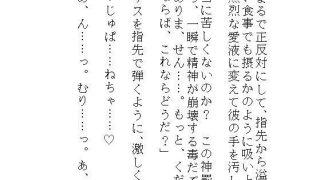 まるで正反対にして、指先から溢
い食事でも摂るかのように吸い上
熱烈な愛液に変えて彼の手を汚し
に苦しくないのか？　この神
、一瞬で精神が崩壊する毒だ
ありま、せん……。もっと、くだ
らば、これならどうだ？」
リスを指先で弾くように、激しく
じゅぱ……ねちゃ……♡
あ、ん……っ。むり……っ。あ、